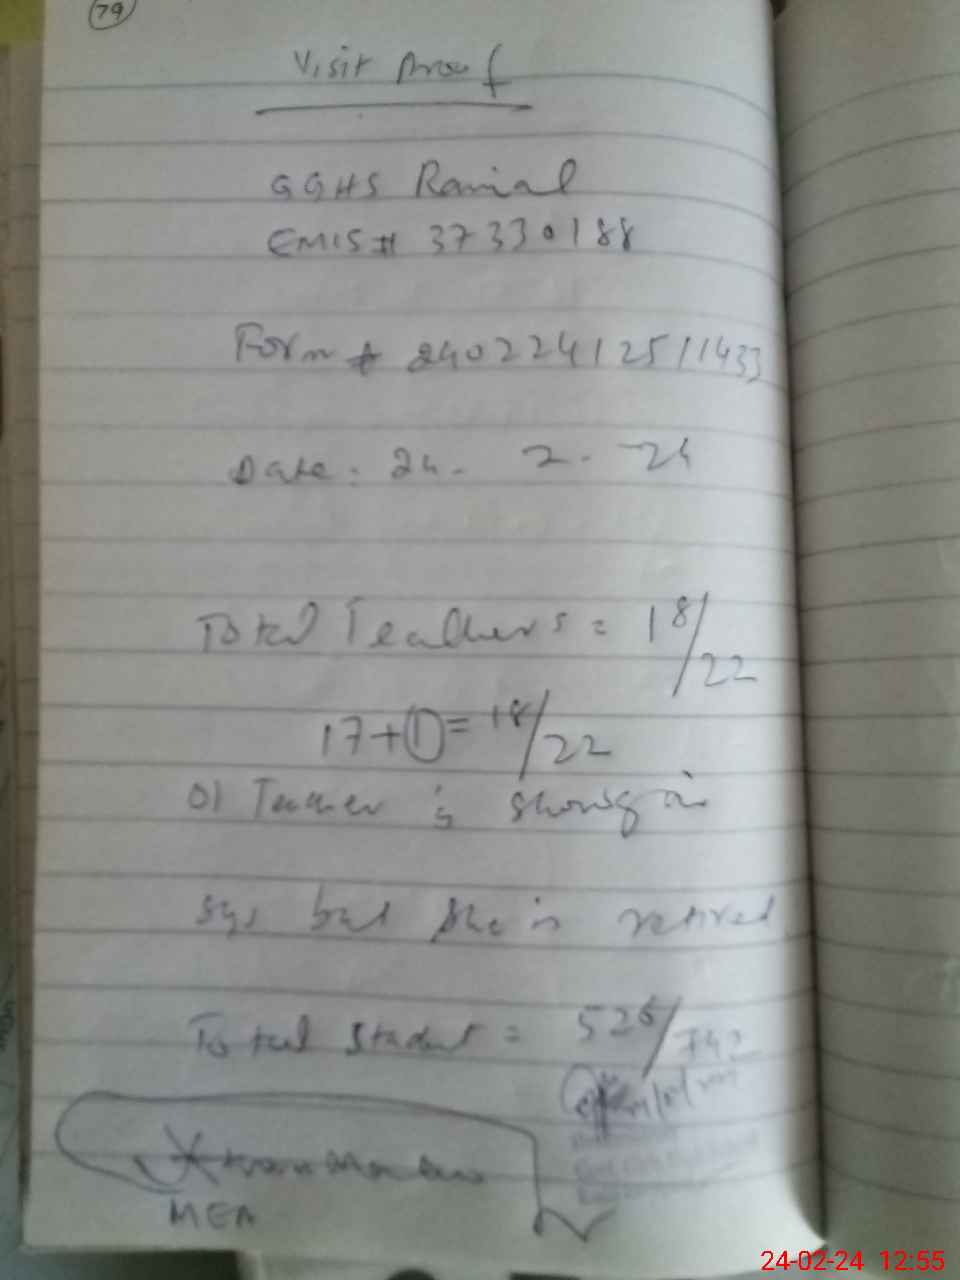 79
Visit Proof
GGHS Ranial
EMIS # 37330188
Form # 24022412511433
Date: 24. 2. 24
Total Teachers = 18/22
17+1= 18/22
01 Teacher is showing in
sys but she is retired
Total Student = 526/742
MEA
24-02-24 12:55